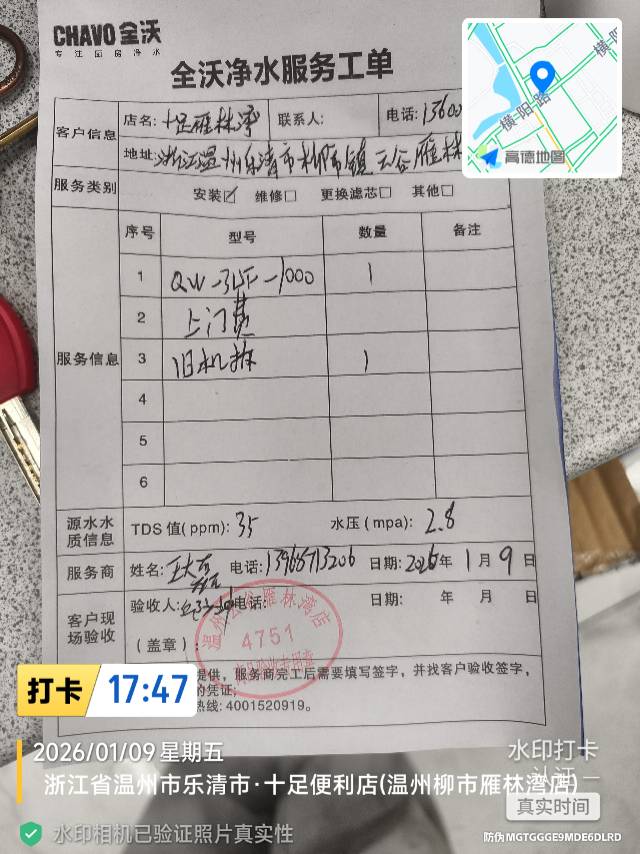 CHAVO 全沃
专注厨房净水
全沃净水服务工单
客户信息 店名: 十足雁林湾 联系人: 电话: 13600
地址: 浙江温州乐清市柳市镇云谷雁林
服务类别 安装☑ 维修□ 更换滤芯□ 其他□
服务信息 序号 型号 数量 备注
1 QW-3LF-1000 1
2 上门费
3 旧机拆 1
4
5
6
源水水质信息 TDS 值(ppm): 35 水压(mpa): 2.8
服务商 姓名: 电话: 13968713206 日期: 2026年 1月 9日
客户现场验收 验收人: 电话: 日期: 年 月 日
(盖章):
温州云谷雁林湾店
4751
提供,服务商完工后需要填写签字,并找客户验收签字,
的凭证;
热线: 4001520919。
横阳路
横阳
高德地图
打卡 17:47
2026/01/09 星期五
浙江省温州市乐清市·十足便利店(温州柳市雁林湾店)
水印相机已验证照片真实性
水印打卡
认证
真实时间
防伪 MGTGGGE9MDE6DLRD